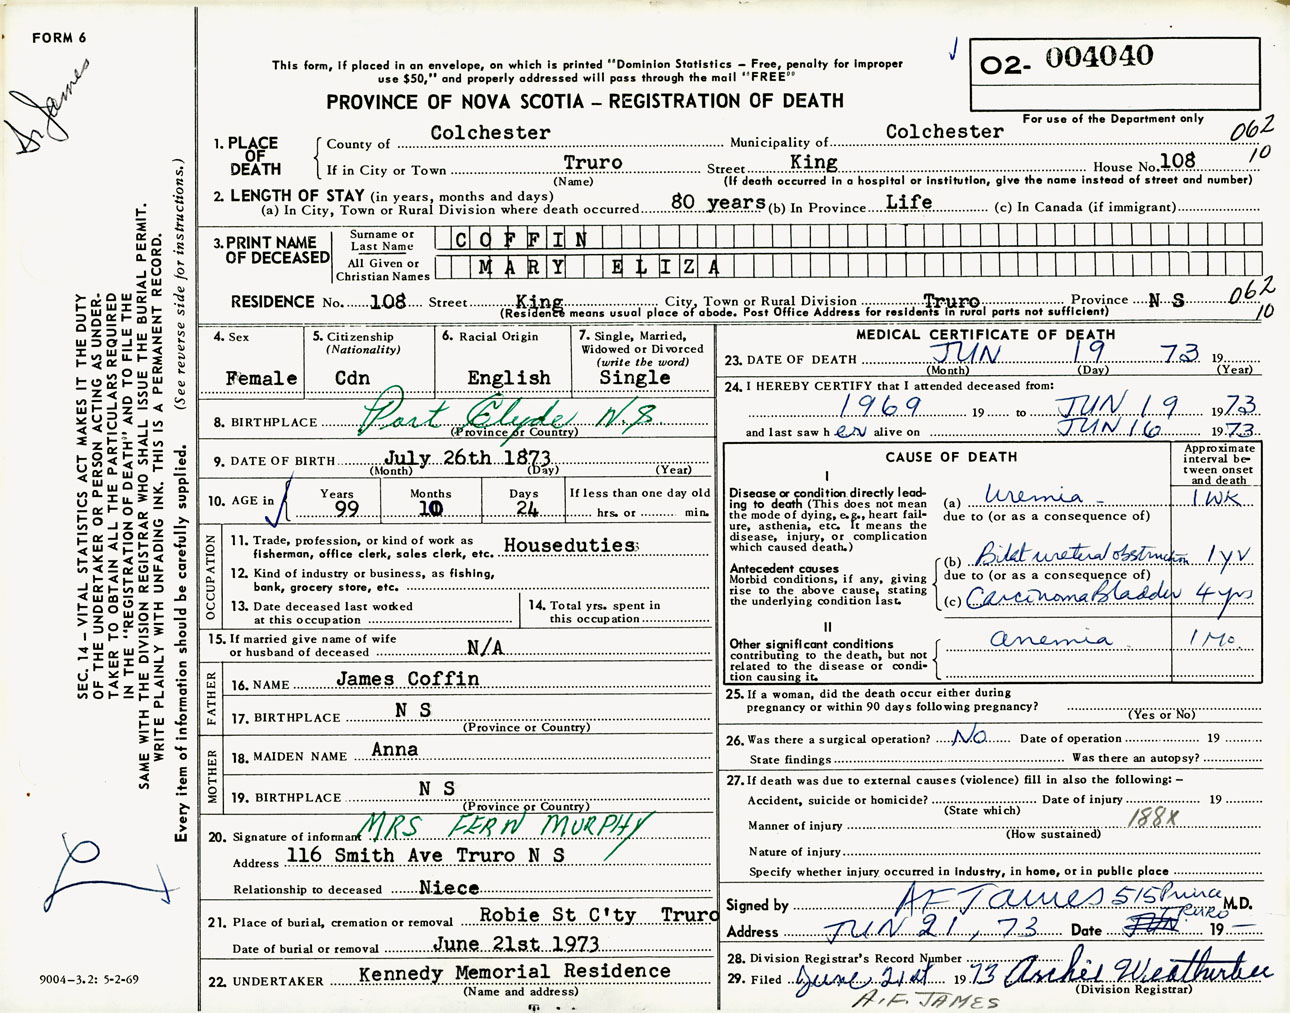 FORM 6
Dr James
This form, if placed in an envelope, on which is printed "Dominion Statistics – Free, penalty for improper
use $50," and properly addressed will pass through the mail "FREE"
O2- 004040
PROVINCE OF NOVA SCOTIA – REGISTRATION OF DEATH
For use of the Department only
1. PLACE OF DEATH
County of Colchester Municipality of Colchester 062
If in City or Town Truro Street King House No. 108 10
(Name) (If death occurred in a hospital or institution, give the name instead of street and number)
2. LENGTH OF STAY (in years, months and days)
(a) In City, Town or Rural Division where death occurred 80 years (b) In Province Life (c) In Canada (if immigrant)
3. PRINT NAME OF DECEASED
Surname or Last Name COFFIN
All Given or Christian Names MARY ELIZA
RESIDENCE No. 108 Street King City, Town or Rural Division Truro Province N S 062
(Residence means usual place of abode. Post Office Address for residents in rural parts not sufficient) 10
4. Sex
Female
5. Citizenship
(Nationality)
Cdn
6. Racial Origin
English
7. Single, Married,
Widowed or Divorced
(write the word)
Single
8. BIRTHPLACE Port Clyde N.S.
(Province or Country)
9. DATE OF BIRTH July 26th 1873
(Month) (Day) (Year)
10. AGE in
Years Months Days If less than one day old
99 10 24 hrs. or min.
OCCUPATION
11. Trade, profession, or kind of work as
fisherman, office clerk, sales clerk, etc. Houseduties
12. Kind of industry or business, as fishing,
bank, grocery store, etc.
13. Date deceased last worked
at this occupation
14. Total yrs. spent in
this occupation
15. If married give name of wife
or husband of deceased N/A
FATHER
16. NAME James Coffin
17. BIRTHPLACE N S
(Province or Country)
MOTHER
18. MAIDEN NAME Anna
19. BIRTHPLACE N S
(Province or Country)
20. Signature of informant MRS FERN MURPHY
Address 116 Smith Ave Truro N S
Relationship to deceased Niece
21. Place of burial, cremation or removal Robie St C'ty Truro
Date of burial or removal June 21st 1973
22. UNDERTAKER Kennedy Memorial Residence
(Name and address)
MEDICAL CERTIFICATE OF DEATH
23. DATE OF DEATH JUN 19 73 19
(Month) (Day) (Year)
24. I HEREBY CERTIFY that I attended deceased from:
1969 19 to JUN 19 1973
and last saw her alive on JUN 16 1973
CAUSE OF DEATH
Approximate
interval be-
tween onset
and death
I
Disease or condition directly lead-
ing to death (This does not mean
the mode of dying, e.g., heart fail-
ure, asthenia, etc. It means the
disease, injury, or complication
which caused death.)
(a) Uremia 1 WK
due to (or as a consequence of)
Antecedent causes
Morbid conditions, if any, giving
rise to the above cause, stating
the underlying condition last.
(b) Bilat ureteral obstruction 1 yr
due to (or as a consequence of)
(c) Carcinoma Bladder 4 yrs
II
Other significant conditions
contributing to the death, but not
related to the disease or condi-
tion causing it.
anemia 1 Mo.
25. If a woman, did the death occur either during
pregnancy or within 90 days following pregnancy?
(Yes or No)
26. Was there a surgical operation? No Date of operation 19
State findings Was there an autopsy?
27. If death was due to external causes (violence) fill in also the following: –
Accident, suicide or homicide? Date of injury 19
(State which)
188X
Manner of injury
(How sustained)
Nature of injury
Specify whether injury occurred in industry, in home, or in public place
Signed by AF James 515 Prince Truro M.D.
Address JUN 21, 73 Date JUN 19 —
28. Division Registrar's Record Number
29. Filed June 21st 1973 Archie Weatherbee
(Division Registrar)
A.F. JAMES
SEC. 14 – VITAL STATISTICS ACT MAKES IT THE DUTY
OF THE UNDERTAKER OR PERSON ACTING AS UNDER-
TAKER TO OBTAIN ALL THE PARTICULARS REQUIRED
IN THE "REGISTRATION OF DEATH" AND TO FILE THE
SAME WITH THE DIVISION REGISTRAR WHO SHALL ISSUE THE BURIAL PERMIT.
WRITE PLAINLY WITH UNFADING INK. THIS IS A PERMANENT RECORD.
Every item of information should be carefully supplied. (See reverse side for instructions.)
9004-3.2: 5-2-69